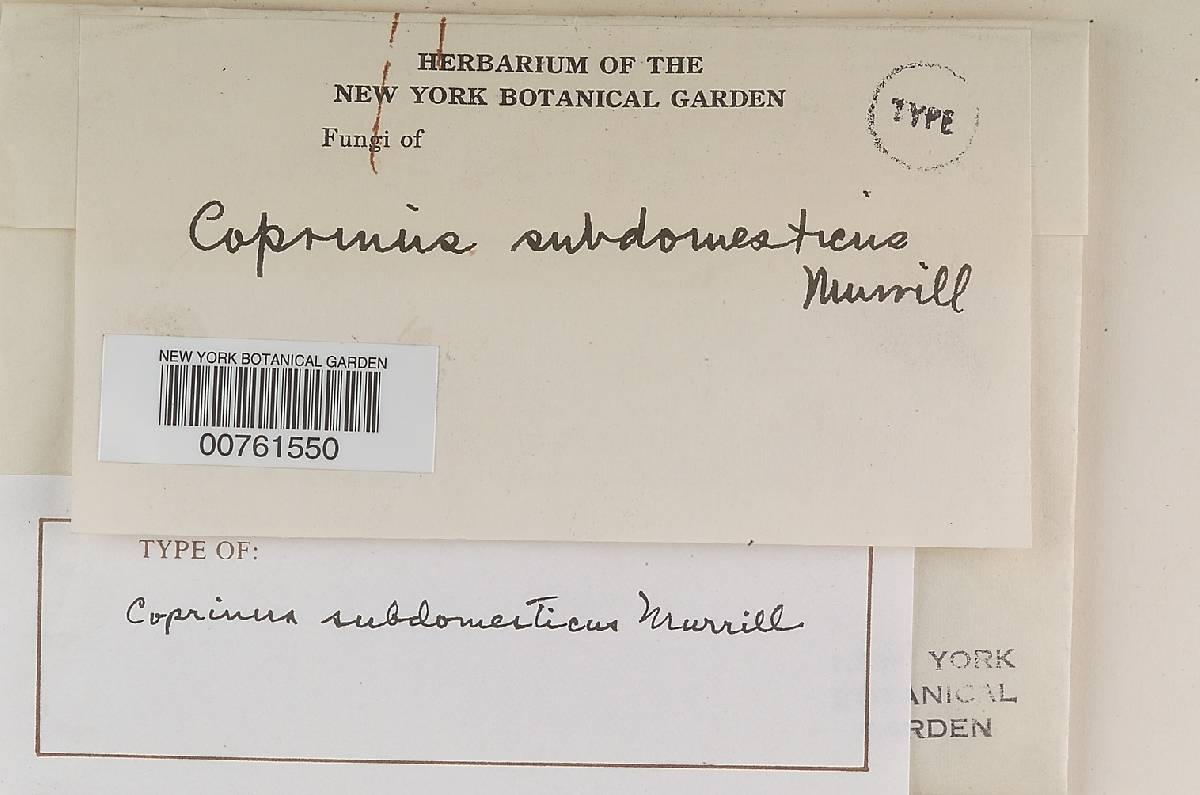 HERBARIUM OF THE
NEW YORK BOTANICAL GARDEN
Fungi of
TYPE
Coprinus subdomesticus
Murrill
NEW YORK BOTANICAL GARDEN
00761550
TYPE OF:
Coprinus subdomesticus Murrill
YORK
ANICAL
RDEN